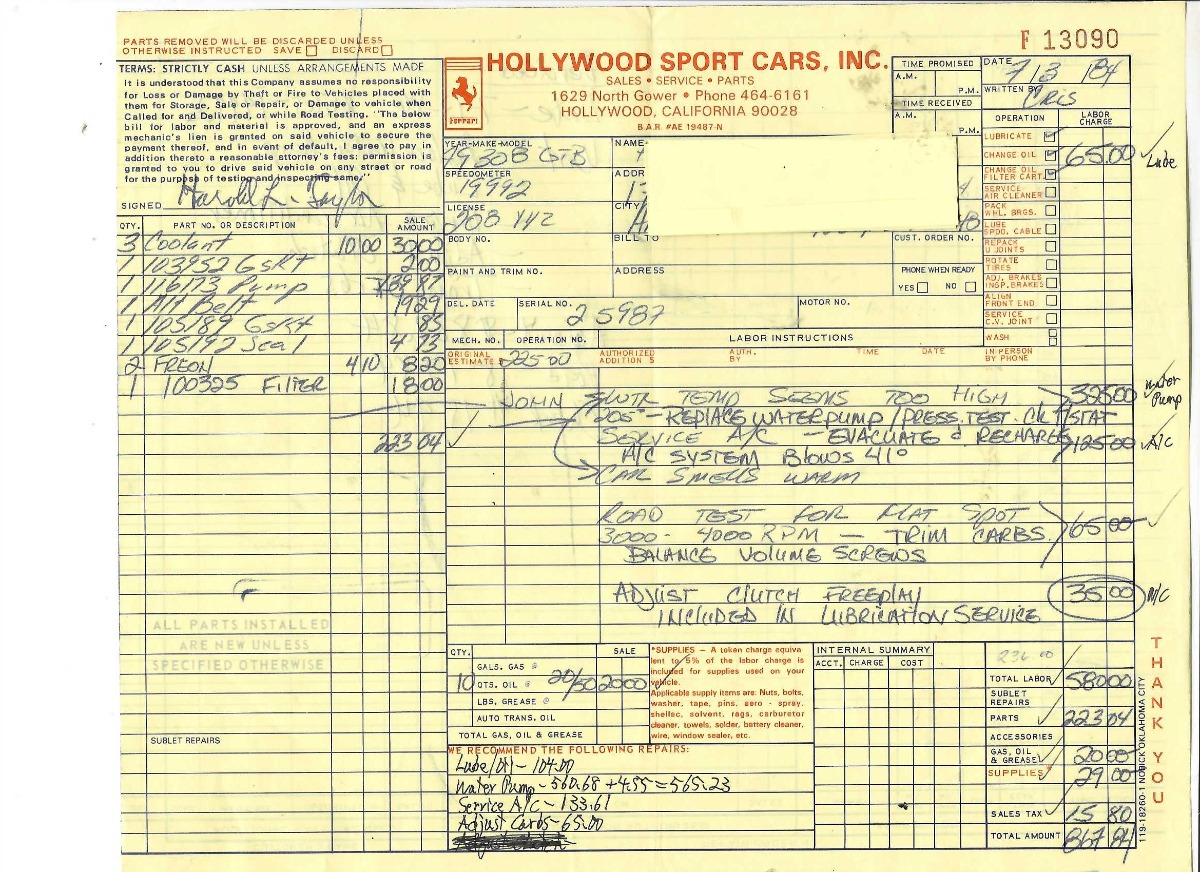 PARTS REMOVED WILL BE DISCARDED UNLESS
OTHERWISE INSTRUCTED SAVE DISCARD
TERMS: STRICTLY CASH UNLESS ARRANGEMENTS MADE
It is understood that this Company assumes no responsibility
for Loss or Damage by Theft or Fire to Vehicles placed with
them for Storage, Sale or Repair, or Damage to vehicle when
Called for and Delivered, or while Road Testing. "The below
bill for labor and material is approved, and an express
mechanic's lien is granted on said vehicle to secure the
payment thereof, and in event of default, I agree to pay in
addition thereto a reasonable attorney's fees: permission is
granted to you to drive said vehicle on any street or road
for the purpose of testing and inspecting same."
SIGNED Harold L. Taylor
Ferrari
HOLLYWOOD SPORT CARS, INC.
SALES • SERVICE • PARTS
1629 North Gower • Phone 464-6161
HOLLYWOOD, CALIFORNIA 90028
B.A.R. #AE 19487-N
F 13090
TIME PROMISED
A.M.
P.M.
TIME RECEIVED
A.M.
P.M.
DATE 7/3/84
WRITTEN BY CRIS
OPERATION LABOR CHARGE
LUBRICATE
CHANGE OIL 65.00 Lube
CHANGE OIL FILTER CART.
SERVICE AIR CLEANER
PACK WHL. BRGS.
LUBE SPDO. CABLE
REPACK U JOINTS
ROTATE TIRES
ADJ. BRAKES INSP. BRAKES
ALIGN FRONT END
SERVICE C.V. JOINT
WASH
IN PERSON BY PHONE
YEAR-MAKE-MODEL 79 308 GTB
NAME
SPEEDOMETER 19992
ADDR
LICENSE 208 YYZ
CITY
BODY NO. BILL TO CUST. ORDER NO.
PAINT AND TRIM NO. ADDRESS PHONE WHEN READY
YES NO
DEL. DATE SERIAL NO. 25987 MOTOR NO.
MECH. NO. OPERATION NO. LABOR INSTRUCTIONS
ORIGINAL ESTIMATE $ 225 00 AUTHORIZED ADDITION $ AUTH. BY TIME DATE
QTY. PART NO. OR DESCRIPTION SALE AMOUNT
3 Coolant 10 00 30 00
1 103952 Gskt 2 00
1 116173 Pump 139 87
1 Alt Belt 19 29
1 105189 Gskt 83
1 105192 Seal 4 73
2 FREON 4 10 8 20
1 100325 Filter 18 00
223 04
JOHN WTR TEMP SEEMS TOO HIGH
REPLACE WATER PUMP / PRESS. TEST. CK T/STAT
SERVICE A/C - EVACUATE & RECHARGE 125 00 A/C
A/C SYSTEM BLOWS 41°
CAR SMELLS WARM
Water Pump
ROAD TEST FOR FLAT SPOT
3000 - 4000 RPM - TRIM CARBS. 65 00
BALANCE VOLUME SCREWS
ADJUST CLUTCH FREEPLAY 35 00 N/C
INCLUDED IN LUBRICATION SERVICE
ALL PARTS INSTALLED
ARE NEW UNLESS
SPECIFIED OTHERWISE
SUBLET REPAIRS
QTY. SALE
GALS. GAS @
10 QTS. OIL @ 20/50 20 00
LBS. GREASE @
AUTO TRANS. OIL
TOTAL GAS, OIL & GREASE
*SUPPLIES – A token charge equiva
lent to 5% of the labor charge is
included for supplies used on your
vehicle.
Applicable supply items are: Nuts, bolts,
washer, tape, pins, aero - spray,
shellac, solvent, rags, carburetor
cleaner, towels, solder, battery cleaner,
wire, window sealer, etc.
INTERNAL SUMMARY
ACCT. CHARGE COST
TOTAL LABOR 580 00
SUBLET REPAIRS
PARTS 223 04
ACCESSORIES
GAS, OIL & GREASE 20 00
SUPPLIES* 29 00
SALES TAX 15 80
TOTAL AMOUNT 867 84
WE RECOMMEND THE FOLLOWING REPAIRS:
Lube/Oil - 104.00
Water Pump - 560.68 + 4.55 = 565.23
Service A/C - 133.61
Adjust Carbs - 65.00
THANK YOU
119-18260-1 NORICK OKLAHOMA CITY